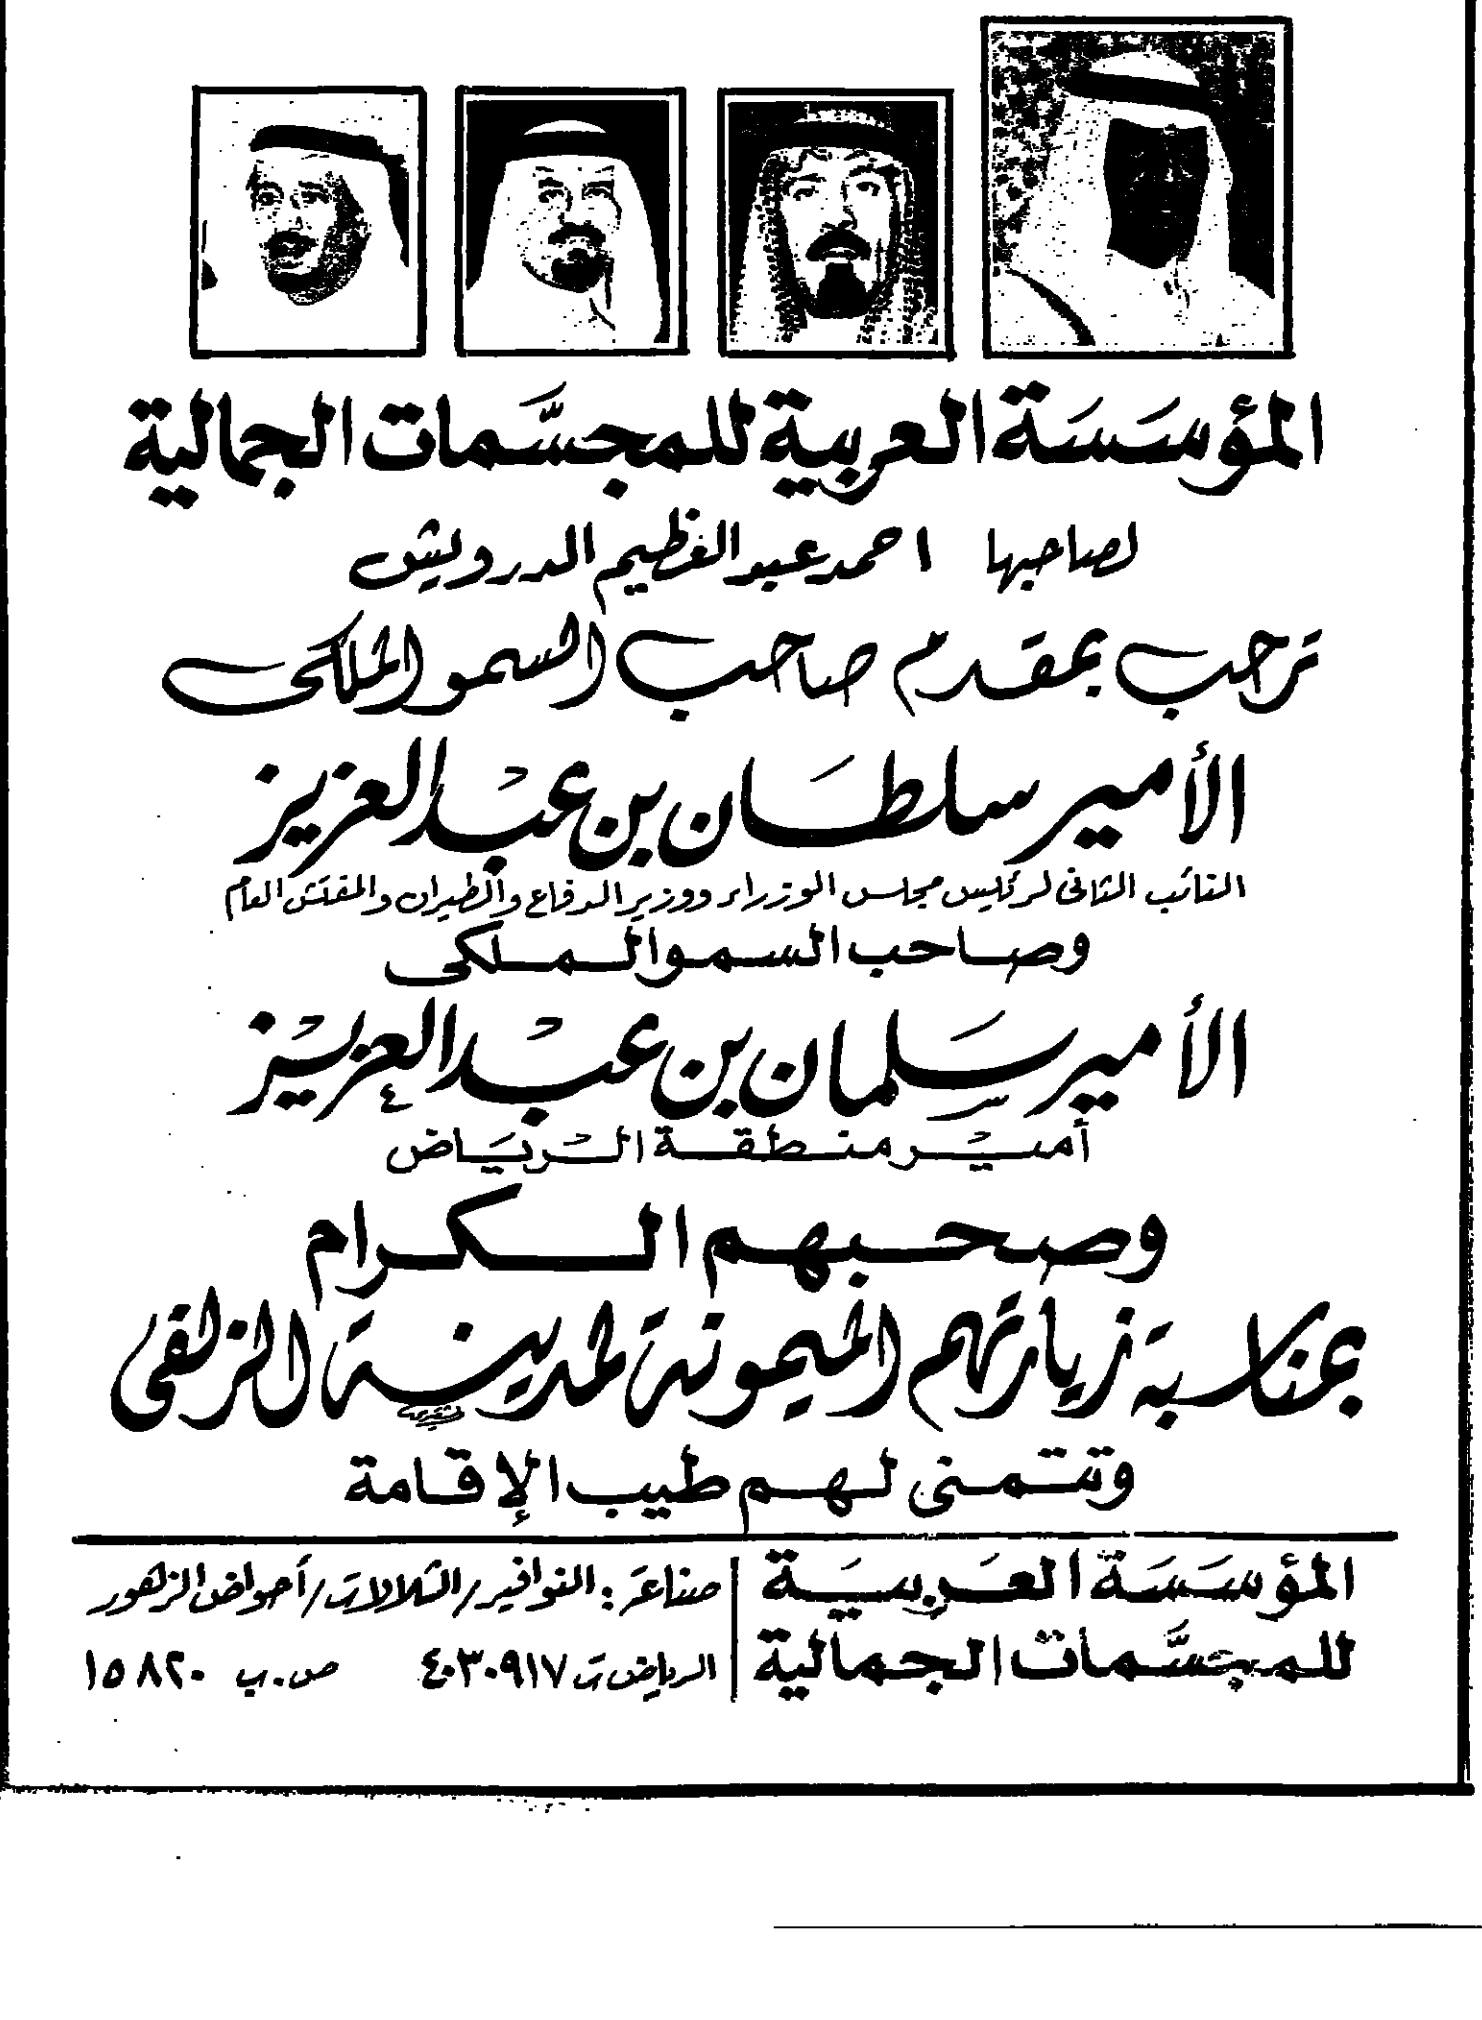 المؤسسة العربية للمجسمات الجمالية
لصاحبها احمد عبد العظيم الدرويش
ترحب بمقدم صاحب السمو الملكي
الأمير سلطان بن عبد العزيز
النائب الثاني لرئيس مجلس الوزراء ووزير الدفاع والطيران والمفتش العام
وصاحب السمو الملكي
الأمير سلمان بن عبد العزيز
أمير منطقة الرياض
وصحبهم الكرام
بمناسبة زيارتهم الميمونة لمدينة الزلفى
وتتمنى لهم طيب الإقامة
المؤسسة العربية
للمجسمات الجمالية
صناعة : النوافير / الشلالات / أحواض الزهور
الرياض ت ٤٠٣٠٩١٧ ص.ب ١٥٨٢٠